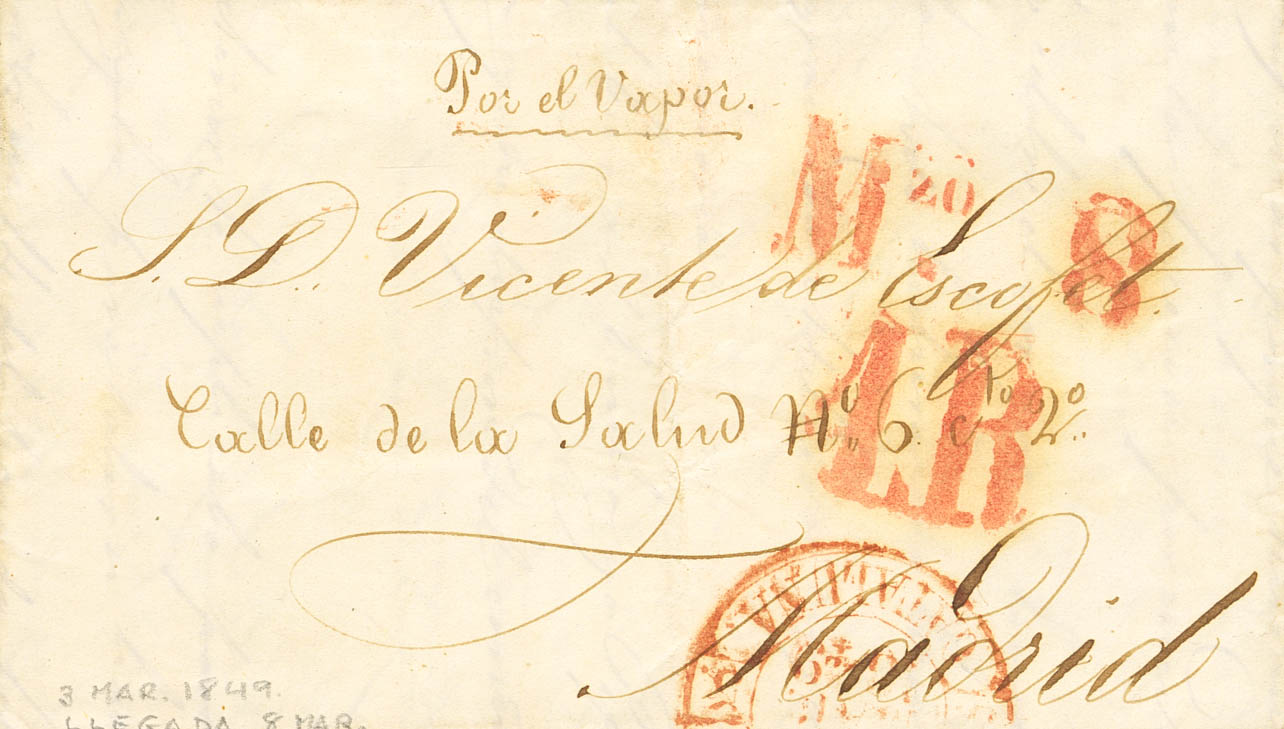 Por el Vapor.
S. D. Vicente de Escofet
Mzo 8
1R
Calle de la Salud Nº 6 cto 2º
Madrid
3 MAR. 1849.
LLEGADA 8 MAR.